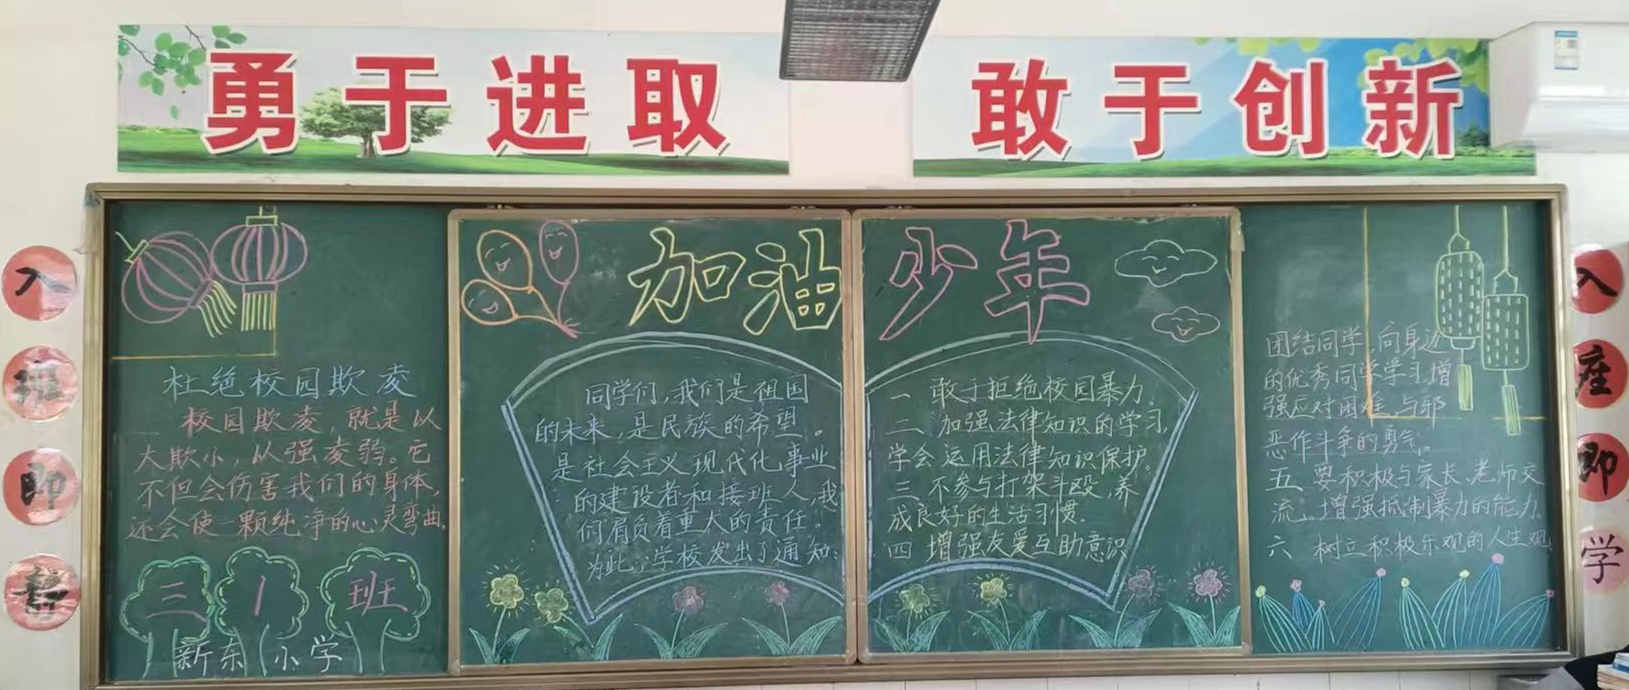 勇于进取
敢于创新
入
班
即
静
加油少年
杜绝校园欺凌
校园欺凌，就是以
大欺小，以强凌弱。它
不但会伤害我们的身体，
还会使一颗纯净的心灵弯曲。
三1班
新东小学
同学们，我们是祖国
的未来，是民族的希望。
是社会主义现代化事业
的建设者和接班人，我
们肩负着重大的责任。
为此，学校发出了通知：
一 敢于拒绝校园暴力。
二 加强法律知识的学习，
学会运用法律知识保护。
三 不参与打架斗殴，养
成良好的生活习惯。
四 增强友爱互助意识
团结同学，向身边
的优秀同学学习，增
强应对困难、与邪
恶作斗争的勇气。
五、要积极与家长、老师交
流。增强抵制暴力的能力。
六 树立积极乐观的人生观
入
座
即
学